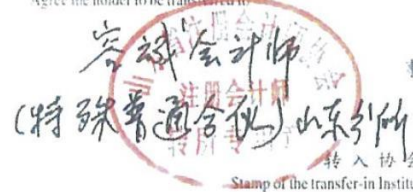 Agree the holder to be transferred to
容诚会计师
注册会计师
(特殊普通合伙)山东分所
转所专
转入协会
Stamp of the transfer-in Institu